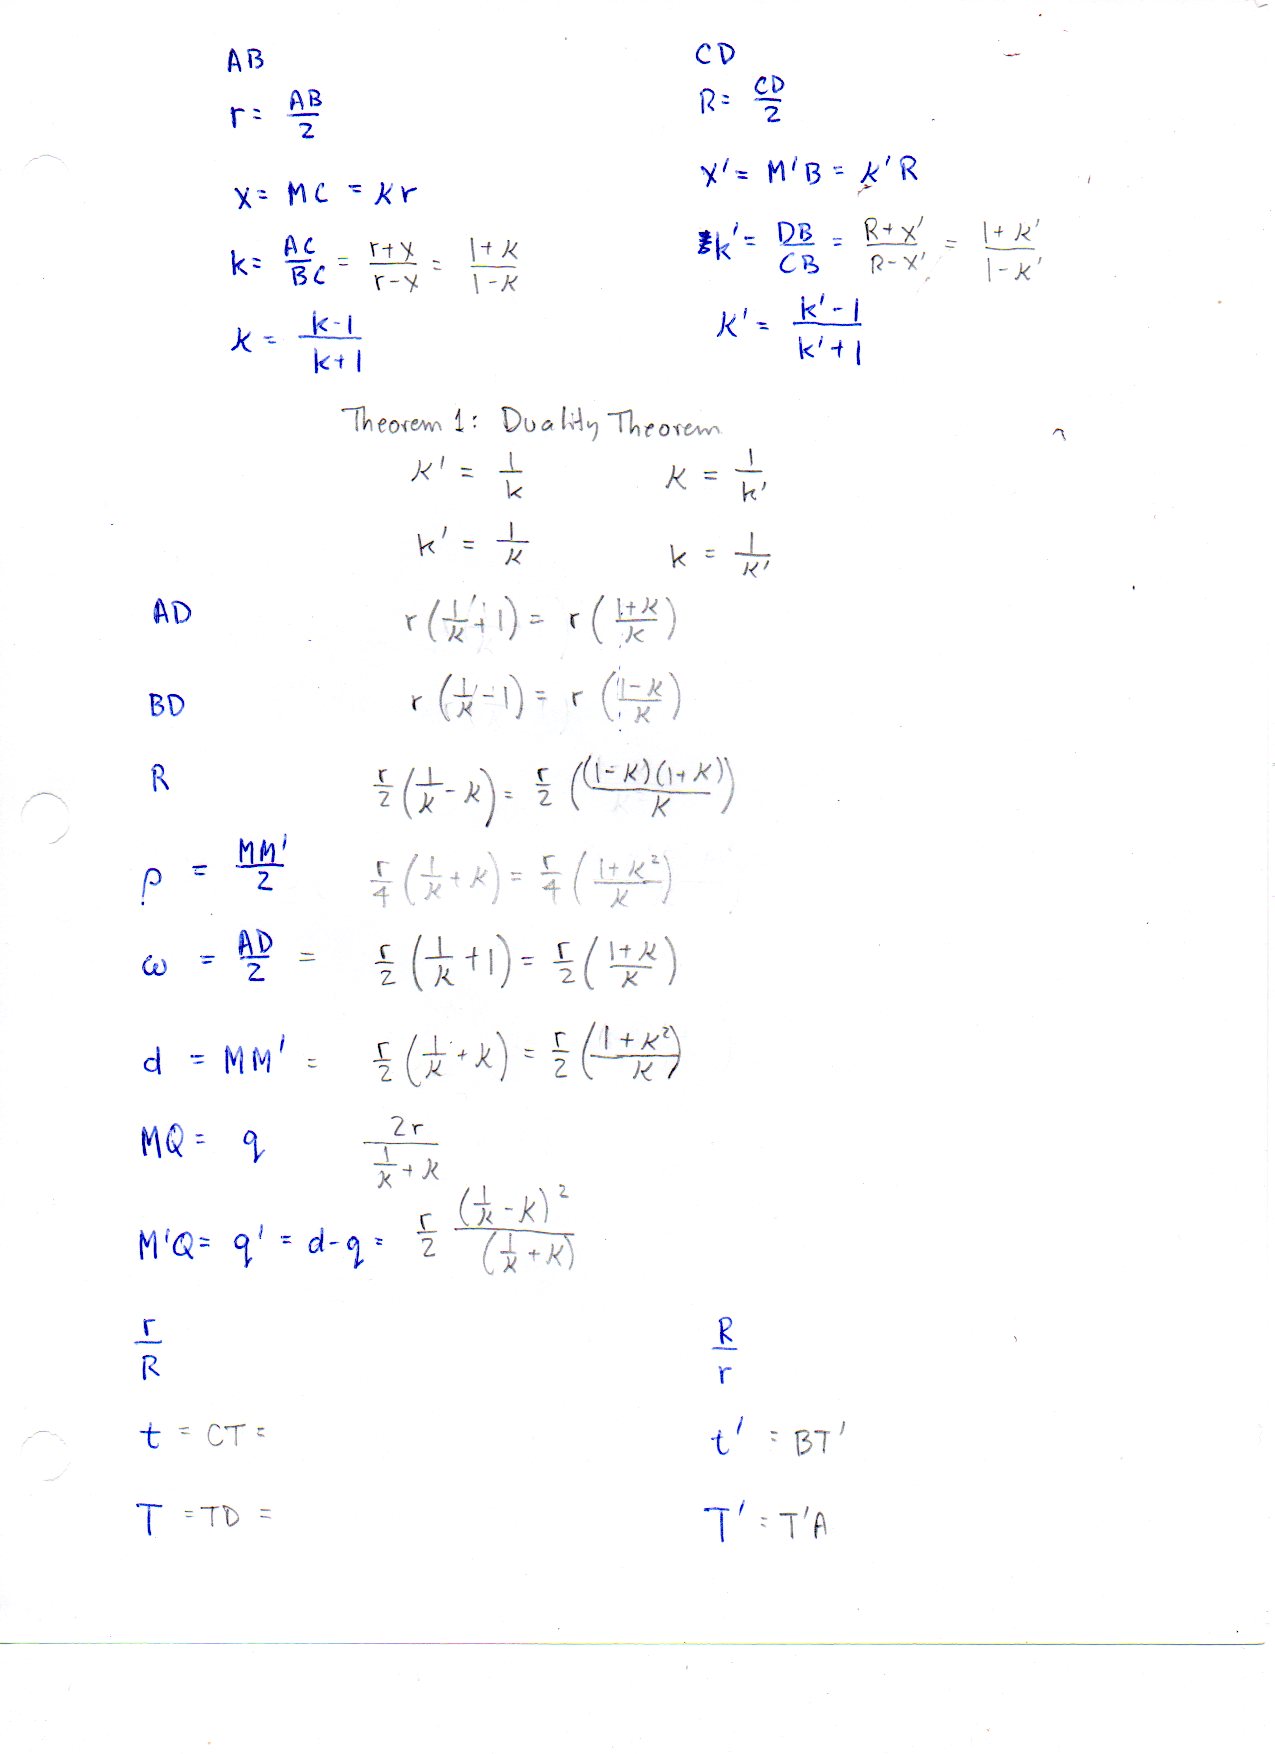 AB CD
r = AB/2 R = CD/2
x = MC = κr x' = M'B = κ'R
k = AC/BC = (r+x)/(r-x) = (1+κ)/(1-κ) k' = DB/CB = (R+x')/(R-x') = (1+κ')/(1-κ')
κ = (k-1)/(k+1) κ' = (k'-1)/(k'+1)
Theorem 1: Duality Theorem
κ' = 1/k κ = 1/k'
k' = 1/κ k = 1/κ'
AD r(1/κ+1) = r((1+κ)/κ)
BD r(1/κ-1) = r((1-κ)/κ)
R r/2(1/κ-κ) = r/2((1-κ)(1+κ)/κ)
ρ = MM'/2 r/4(1/κ+κ) = r/4((1+κ²)/κ)
ω = AD/2 = r/2(1/κ+1) = r/2((1+κ)/κ)
d = MM' = r/2(1/κ+κ) = r/2((1+κ²)/κ)
MQ = q 2r/(1/κ+κ)
M'Q = q' = d-q = r/2 (1/κ-κ)²/(1/κ+κ)
r/R R/r
t = CT = t' = BT'
T = TD = T' = T'A